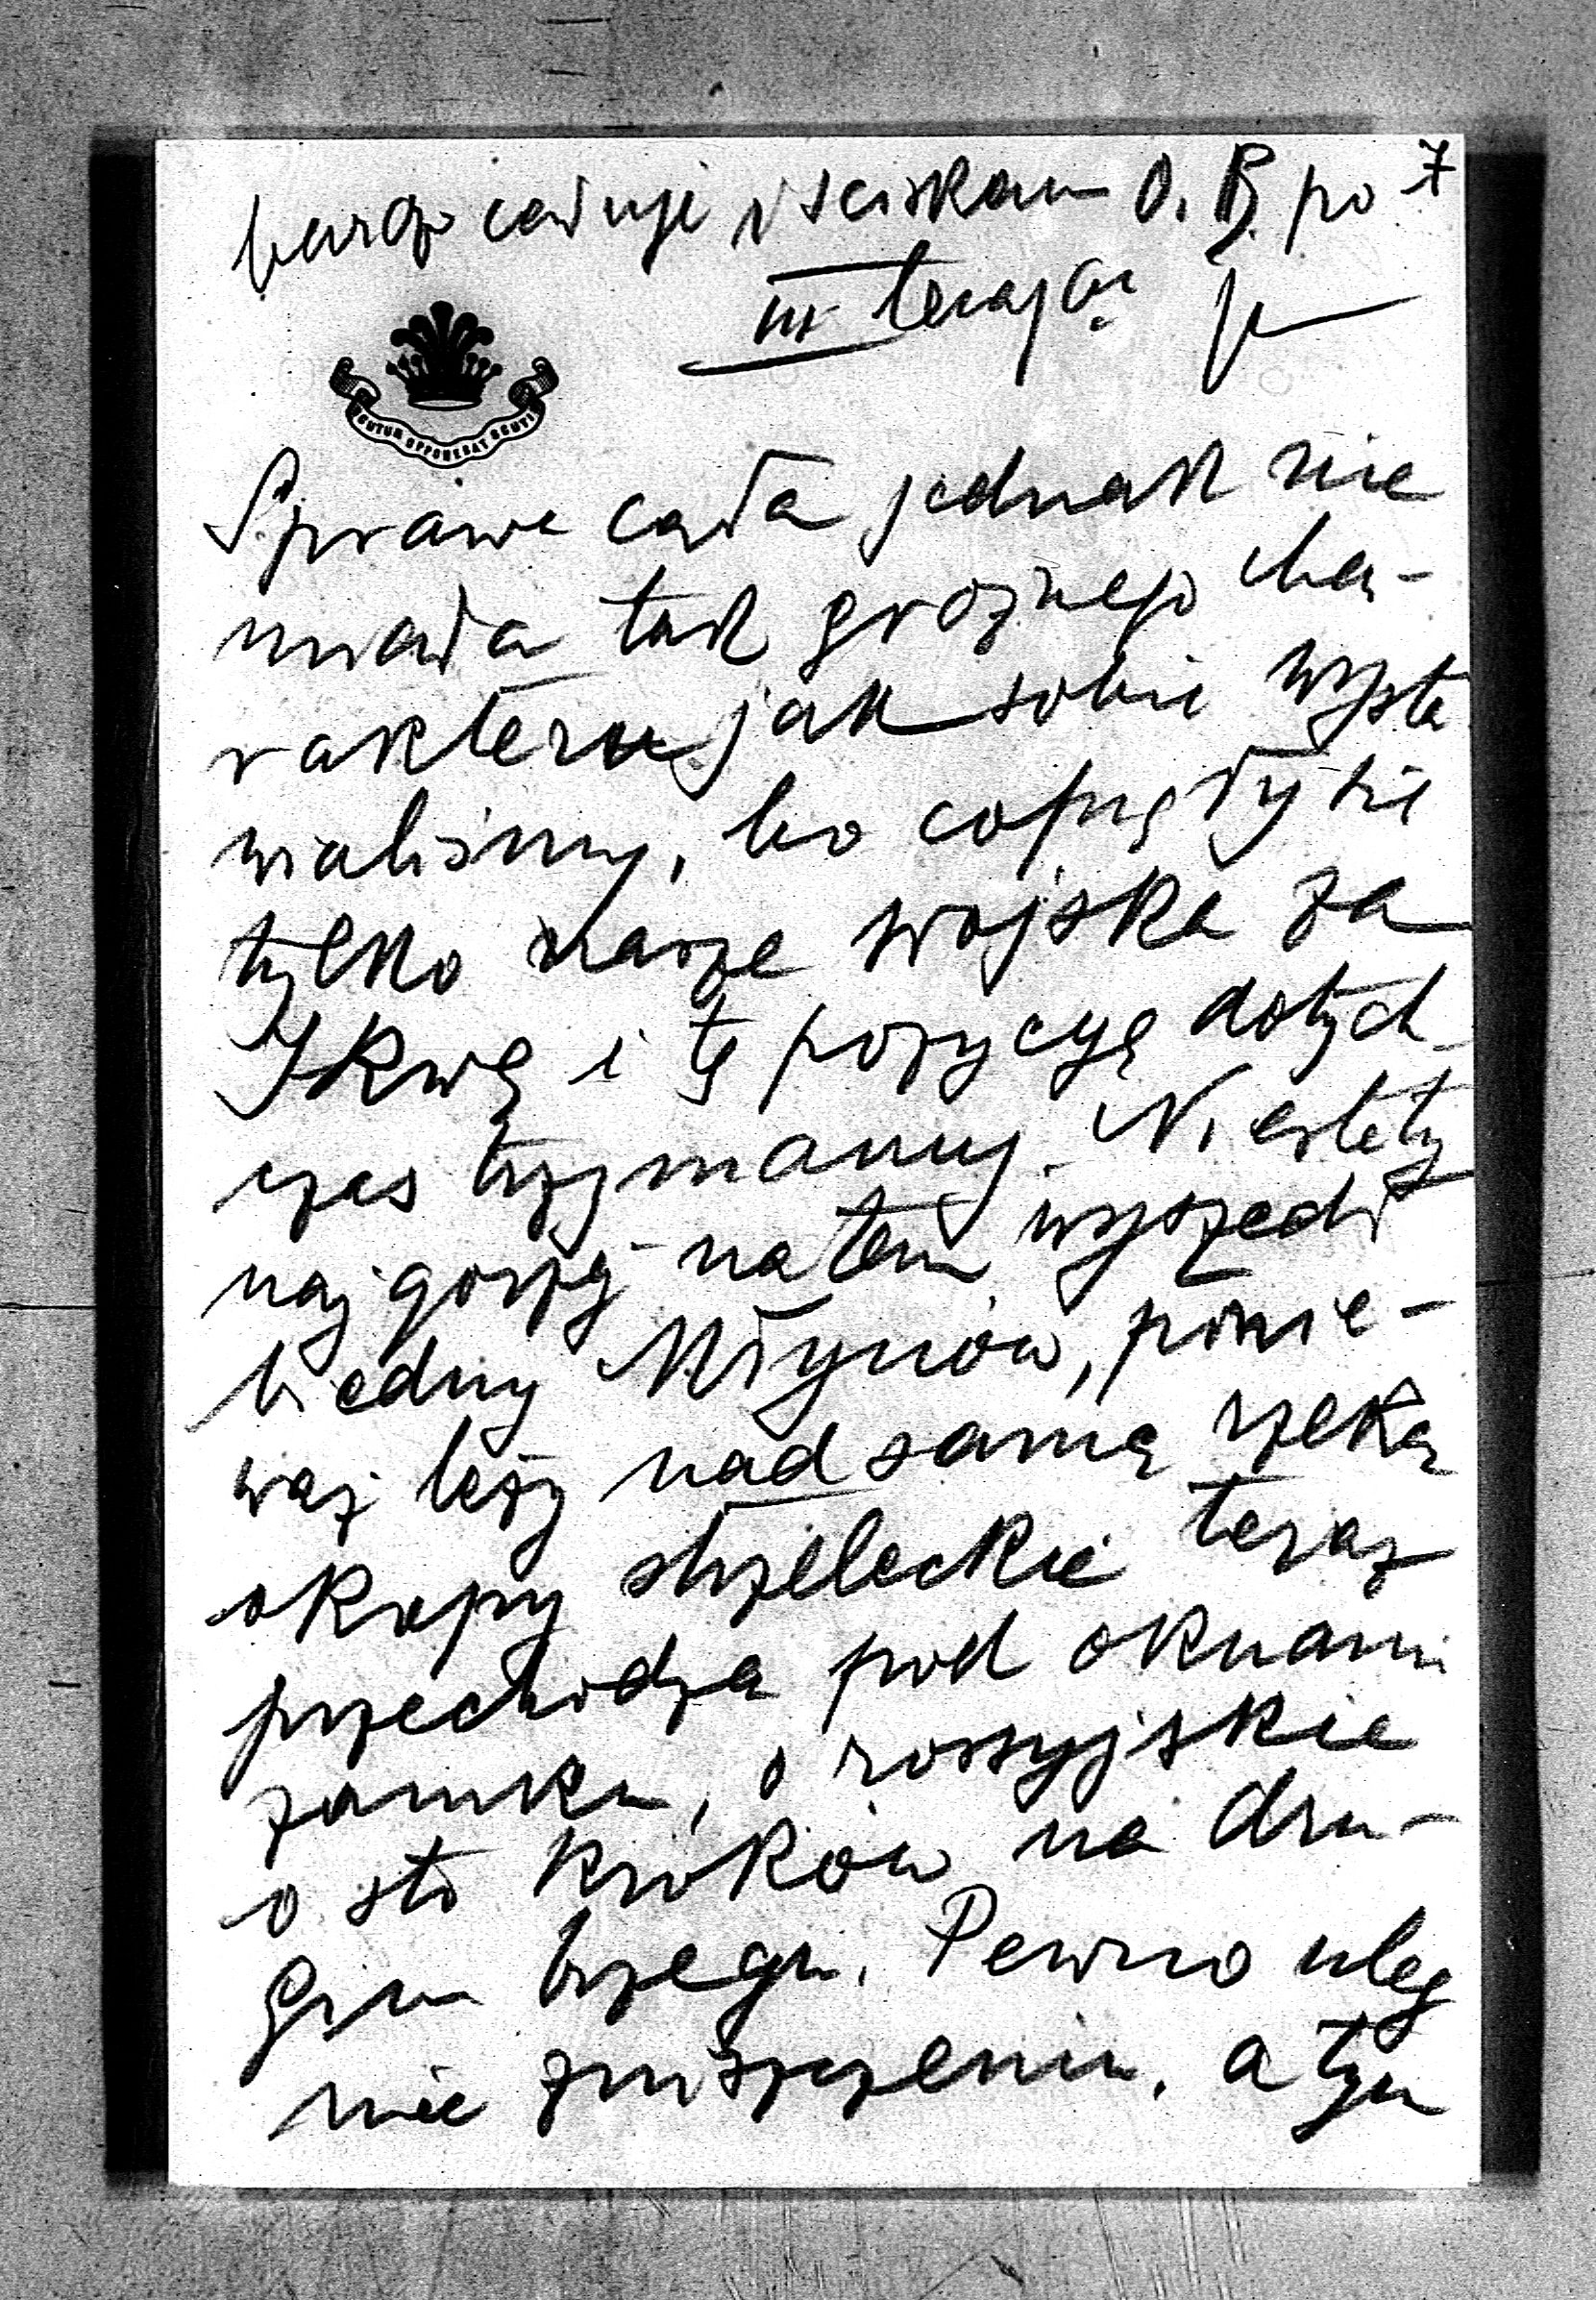 bardzo całuję i ściskam O. B. po 7
Sprawa cała jednak nie
miała tak groźnego cha-
rakteru jak sobie wysta
wialiśmy, bo cofnęły się
tylko nasze wojska za
Ikwę i tę pozycyę dotych
czas trzymamy. Niestety
najgorzej na tem wyszedł
biedny Młynów, ponie-
waż leży nad samą rzeką
okopy strzeleckie teraz
przechodzą pod oknami
zamku, a rossyjskie
o sto kroków na dru-
gim brzegu. Pewno uleg
nie zniszczeniu, a tyn